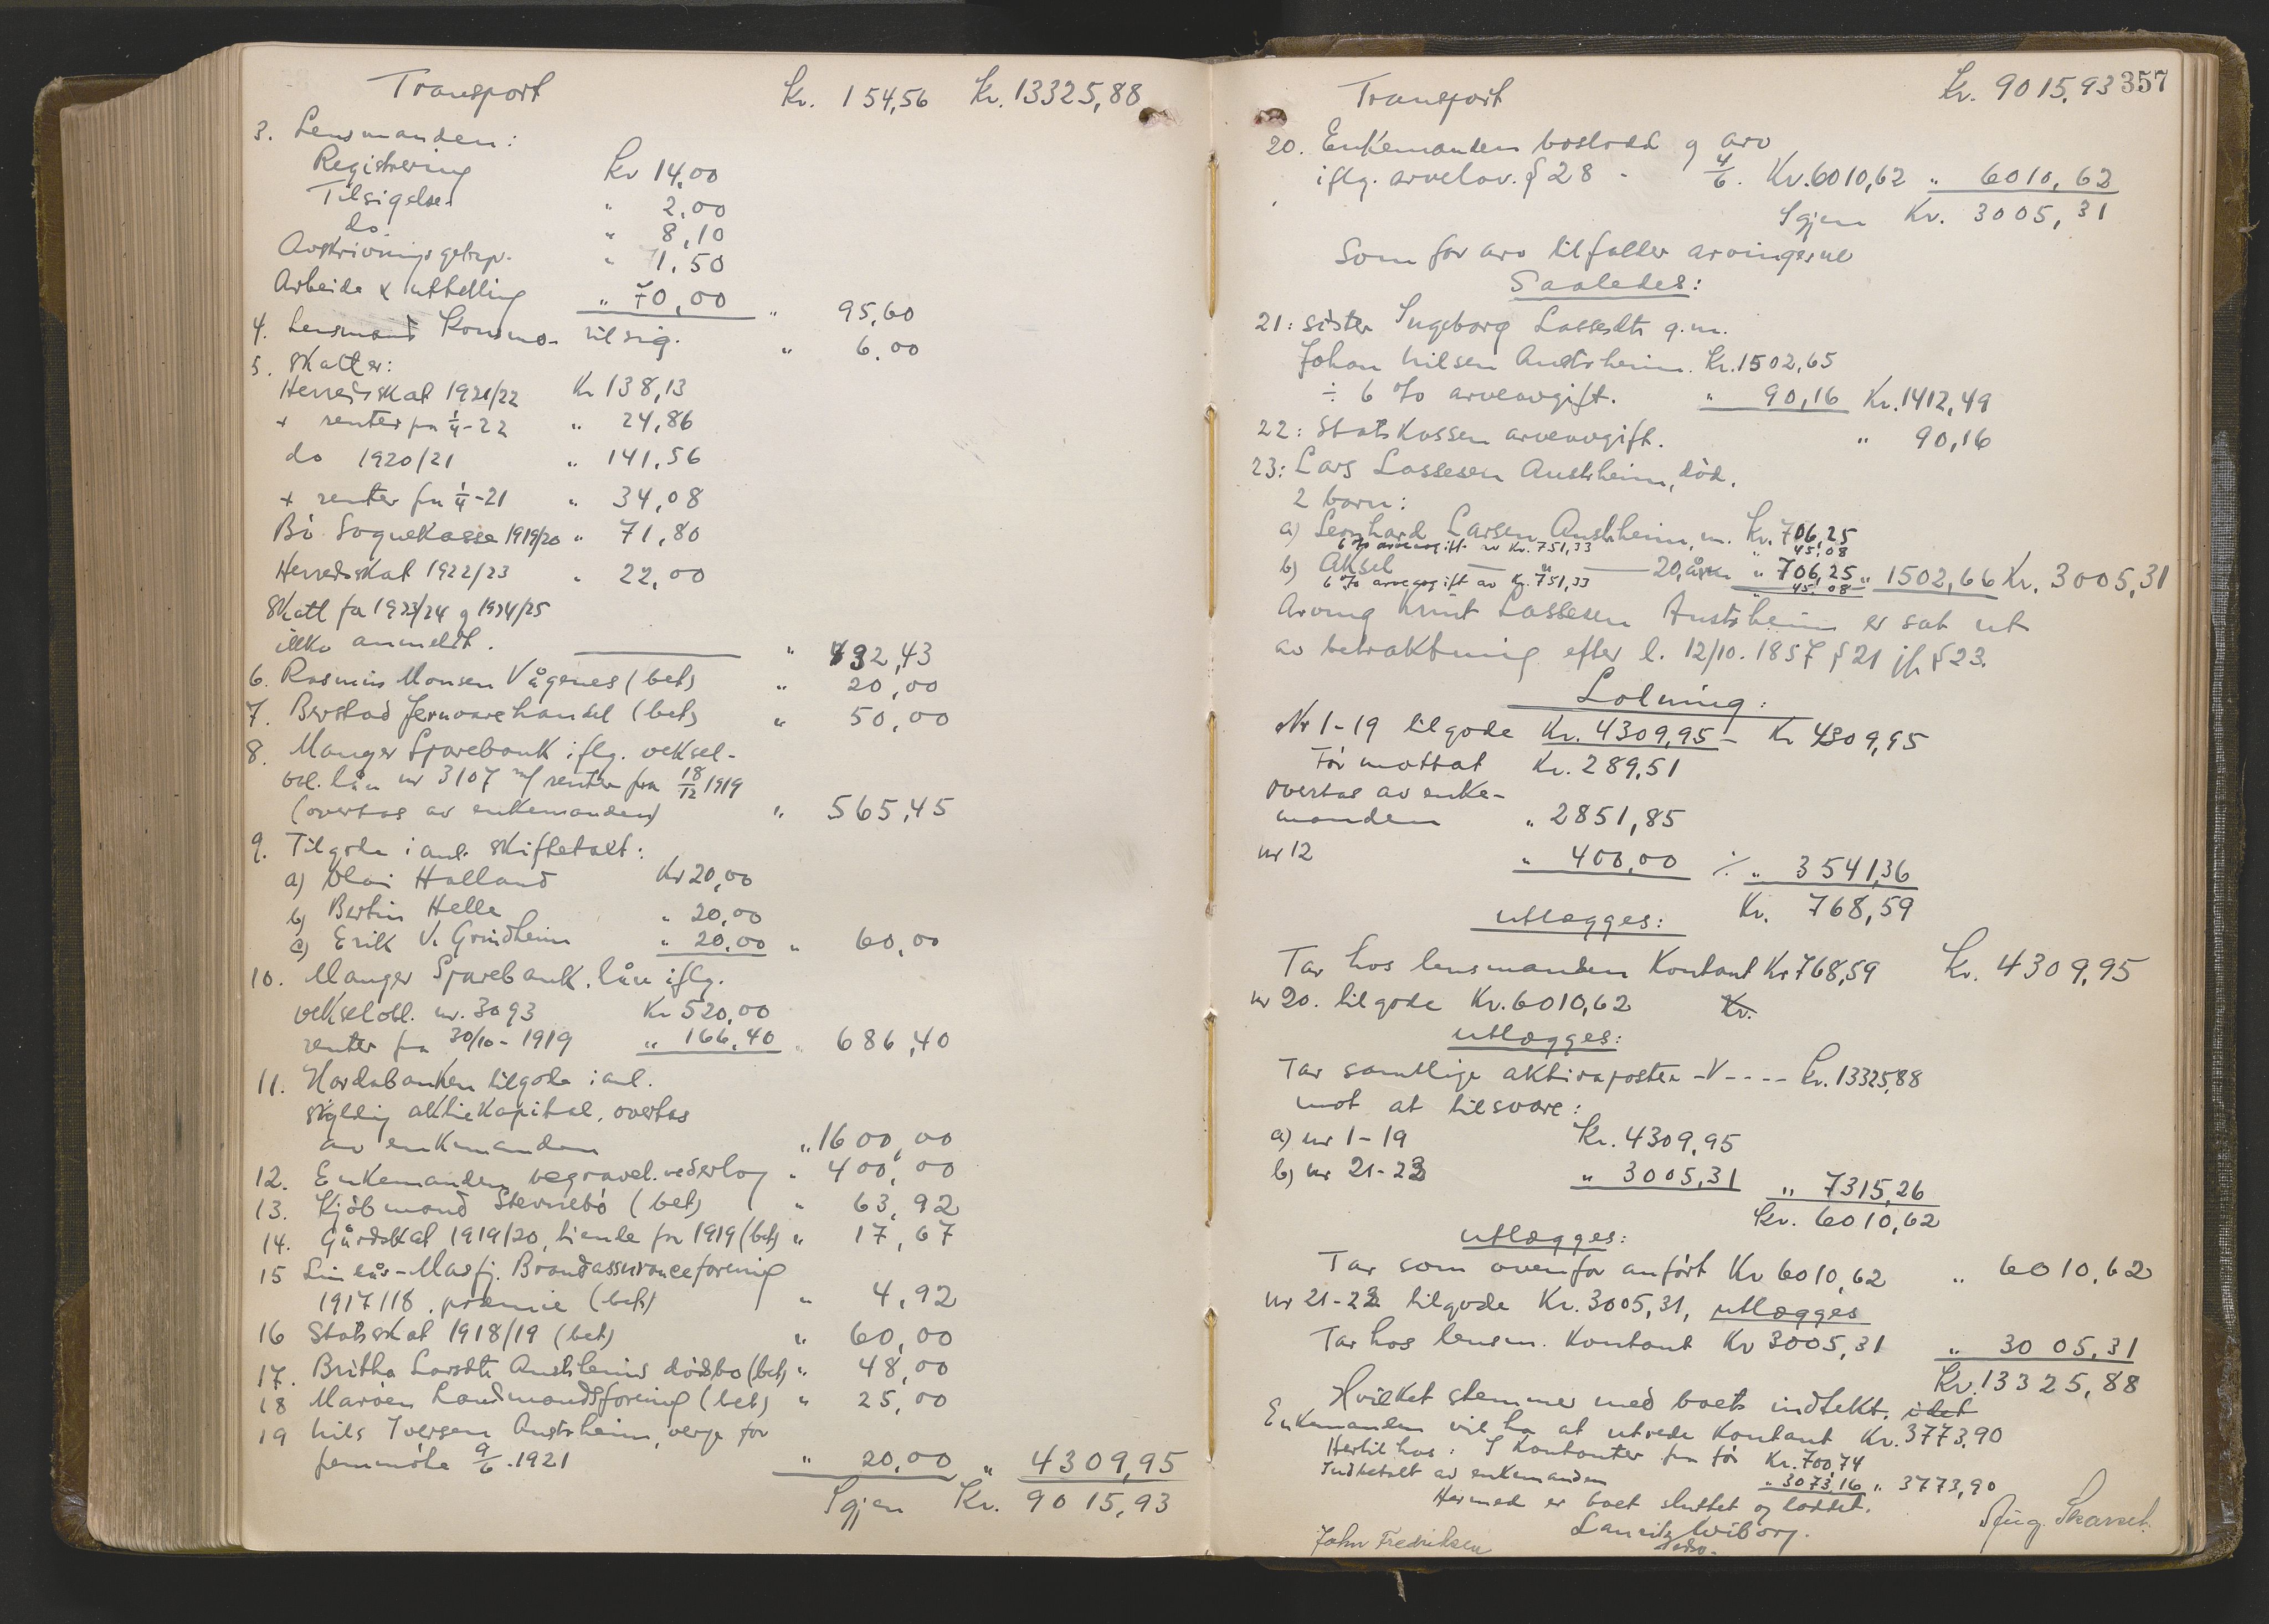 Transport Kr. 154,56 Kr. 13325,88
3. Lensmanden:
Registrering Kr 14,00
Tilsigelse " 2,00
do " 8,10
Avskrivningsgebyr. " 1,50
Arbeide & uttelling " 70,00 " 95,60
4. Lensmand Konsmo. tilsig. " 6,00
5. Skatter:
Herredsskat 1921/22 Kr 138,13
+ renter fra 1/4-22 " 24,86
do 1920/21 " 141,56
+ renter fra 1/4-21 " 34,08
Bö Sognekasse 1919/20 " 71,80
Herredsskat 1922/23 " 22,00
Skatt for 1923/24 og 1924/25
ikke anmeldt. " 432,43
6. Rasmus Monsen Vågenes (bet) " 20,00
7. Berstad Jernvarehandel (bet) " 50,00
8. Manger Sparebank iflg. veksel-
obl. lån nr 3107 m/ renter fra 18/12 1919
(overtas av enkemanden) " 565,45
9. Tilgode i anl. skiftetakt:
a) Olai Halland Kr 20,00
b) Bertin Helle " 20,00
c) Erik V. Grindheim " 20,00 " 60,00
10. Manger Sparebank, lån iflg.
vekselobl. nr. 3093 Kr 520,00
renter fra 30/10-1919 " 166,40 " 686,40
11. Hordabanken tilgode i anl.
skyldig aktiekapital, overtas
av enkemanden " 1600,00
12. Enkemanden begravel. vederlag " 400,00
13. Kjöbmand Sternebö (bet) " 63,92
14. Gårdskat 1919/20, tiende for 1919 (bet) " 17,67
15 Lin eås-Masfj. Brandassuranceforening
1917/18. præmie (bet) " 4,92
16 Statsskat 1918/19 (bet) " 60,00
17. Britha Larsdtr Austrheims dødsbo (bet) " 48,00
18 Maröen Landmandsforening (bet) " 25,00
19 Nils Iversen Austrheim, verge for
fremmöte 9/6.1921 " 20,00 " 4309,95
Igjen Kr. 9015,93
Transport Kr. 9015,93 357
20. Enkemanden boslodd og arv
iflg. arvelov. § 28 - 4/6. Kr. 6010,62 " 6010,62
Igjen Kr. 3005,31
Som for arv tilfaller arvingerne
Saaledes:
21: söster Ingeborg Lassesdtr g.m.
Johan Nilsen Austrheim. Kr. 1502,65
÷ 6 % arveavgift. " 90,16 Kr. 1412,49
22: Statskassen arveavgift. " 90,16
23: Lars Lassesen Austrheim, död.
2 barn:
a) Leonhard Larsen Austrheim, m. Kr. 706,25
6 % arveavgift av Kr. 751,33 " 45,08
b) Aksel — " — 20 år " 706,25 " 1502,66 Kr. 3005,31
6 % arveavgift av Kr. 751,33 " 45,08
Arving Knut Lassesen Austrheim er sat ut
av betraktning efter l. 12/10.1857 § 21 jfr § 23.
Lodning:
Nr 1-19 tilgode Kr. 4309,95 - Kr 4309,95
För mottat Kr. 289,51
overtas av enke-
manden " 2851,85
nr 12 " 400,00 ÷ " 3541,36
Kr. 768,59
utlægges:
Tar hos lensmanden Kontant Kr 768,59 Kr. 4309,95
nr 20. tilgode Kr. 6010,62 Kr.
utlægges:
Tar samtlige aktivaposter -V---- Kr. 13325,88
mot at tilsvare:
a) nr 1-19 Kr. 4309,95
b) nr 21-23 " 3005,31 " 7315,26
Kr. 6010,62
utlægges:
Tar som ovenfor anfört Kr 6010,62 " 6010,62
nr 21-23 tilgode Kr. 3005,31, utlægges
Tar hos lensm. Kontant Kr 3005,31 " 3005,31
Kr. 13325,88
Hvilket stemmer med boets indtekt. idet
Enkemanden vil ha at utrede Kontant Kr. 3773,90
Hertil has: I Kontanter fra för Kr. 700,74
Indbetalt av enkemanden " 3073,16 " 3773,90
Hermed er boet sluttet og loddet.
Lauritz Wiborg.
John Fredriksen